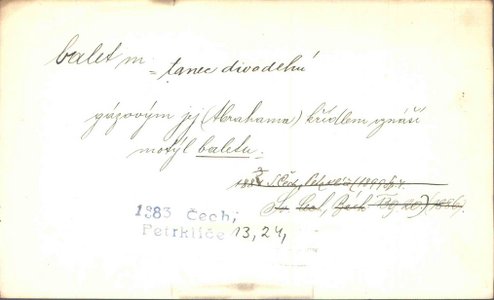 balet m = tanec divodelní
gázovým jej (Abrahama) křídlem vznáší
motýl baletu.
S. Čech, Petrklíče (1899)
1883 Čech,
Petrklíče 13, 24,